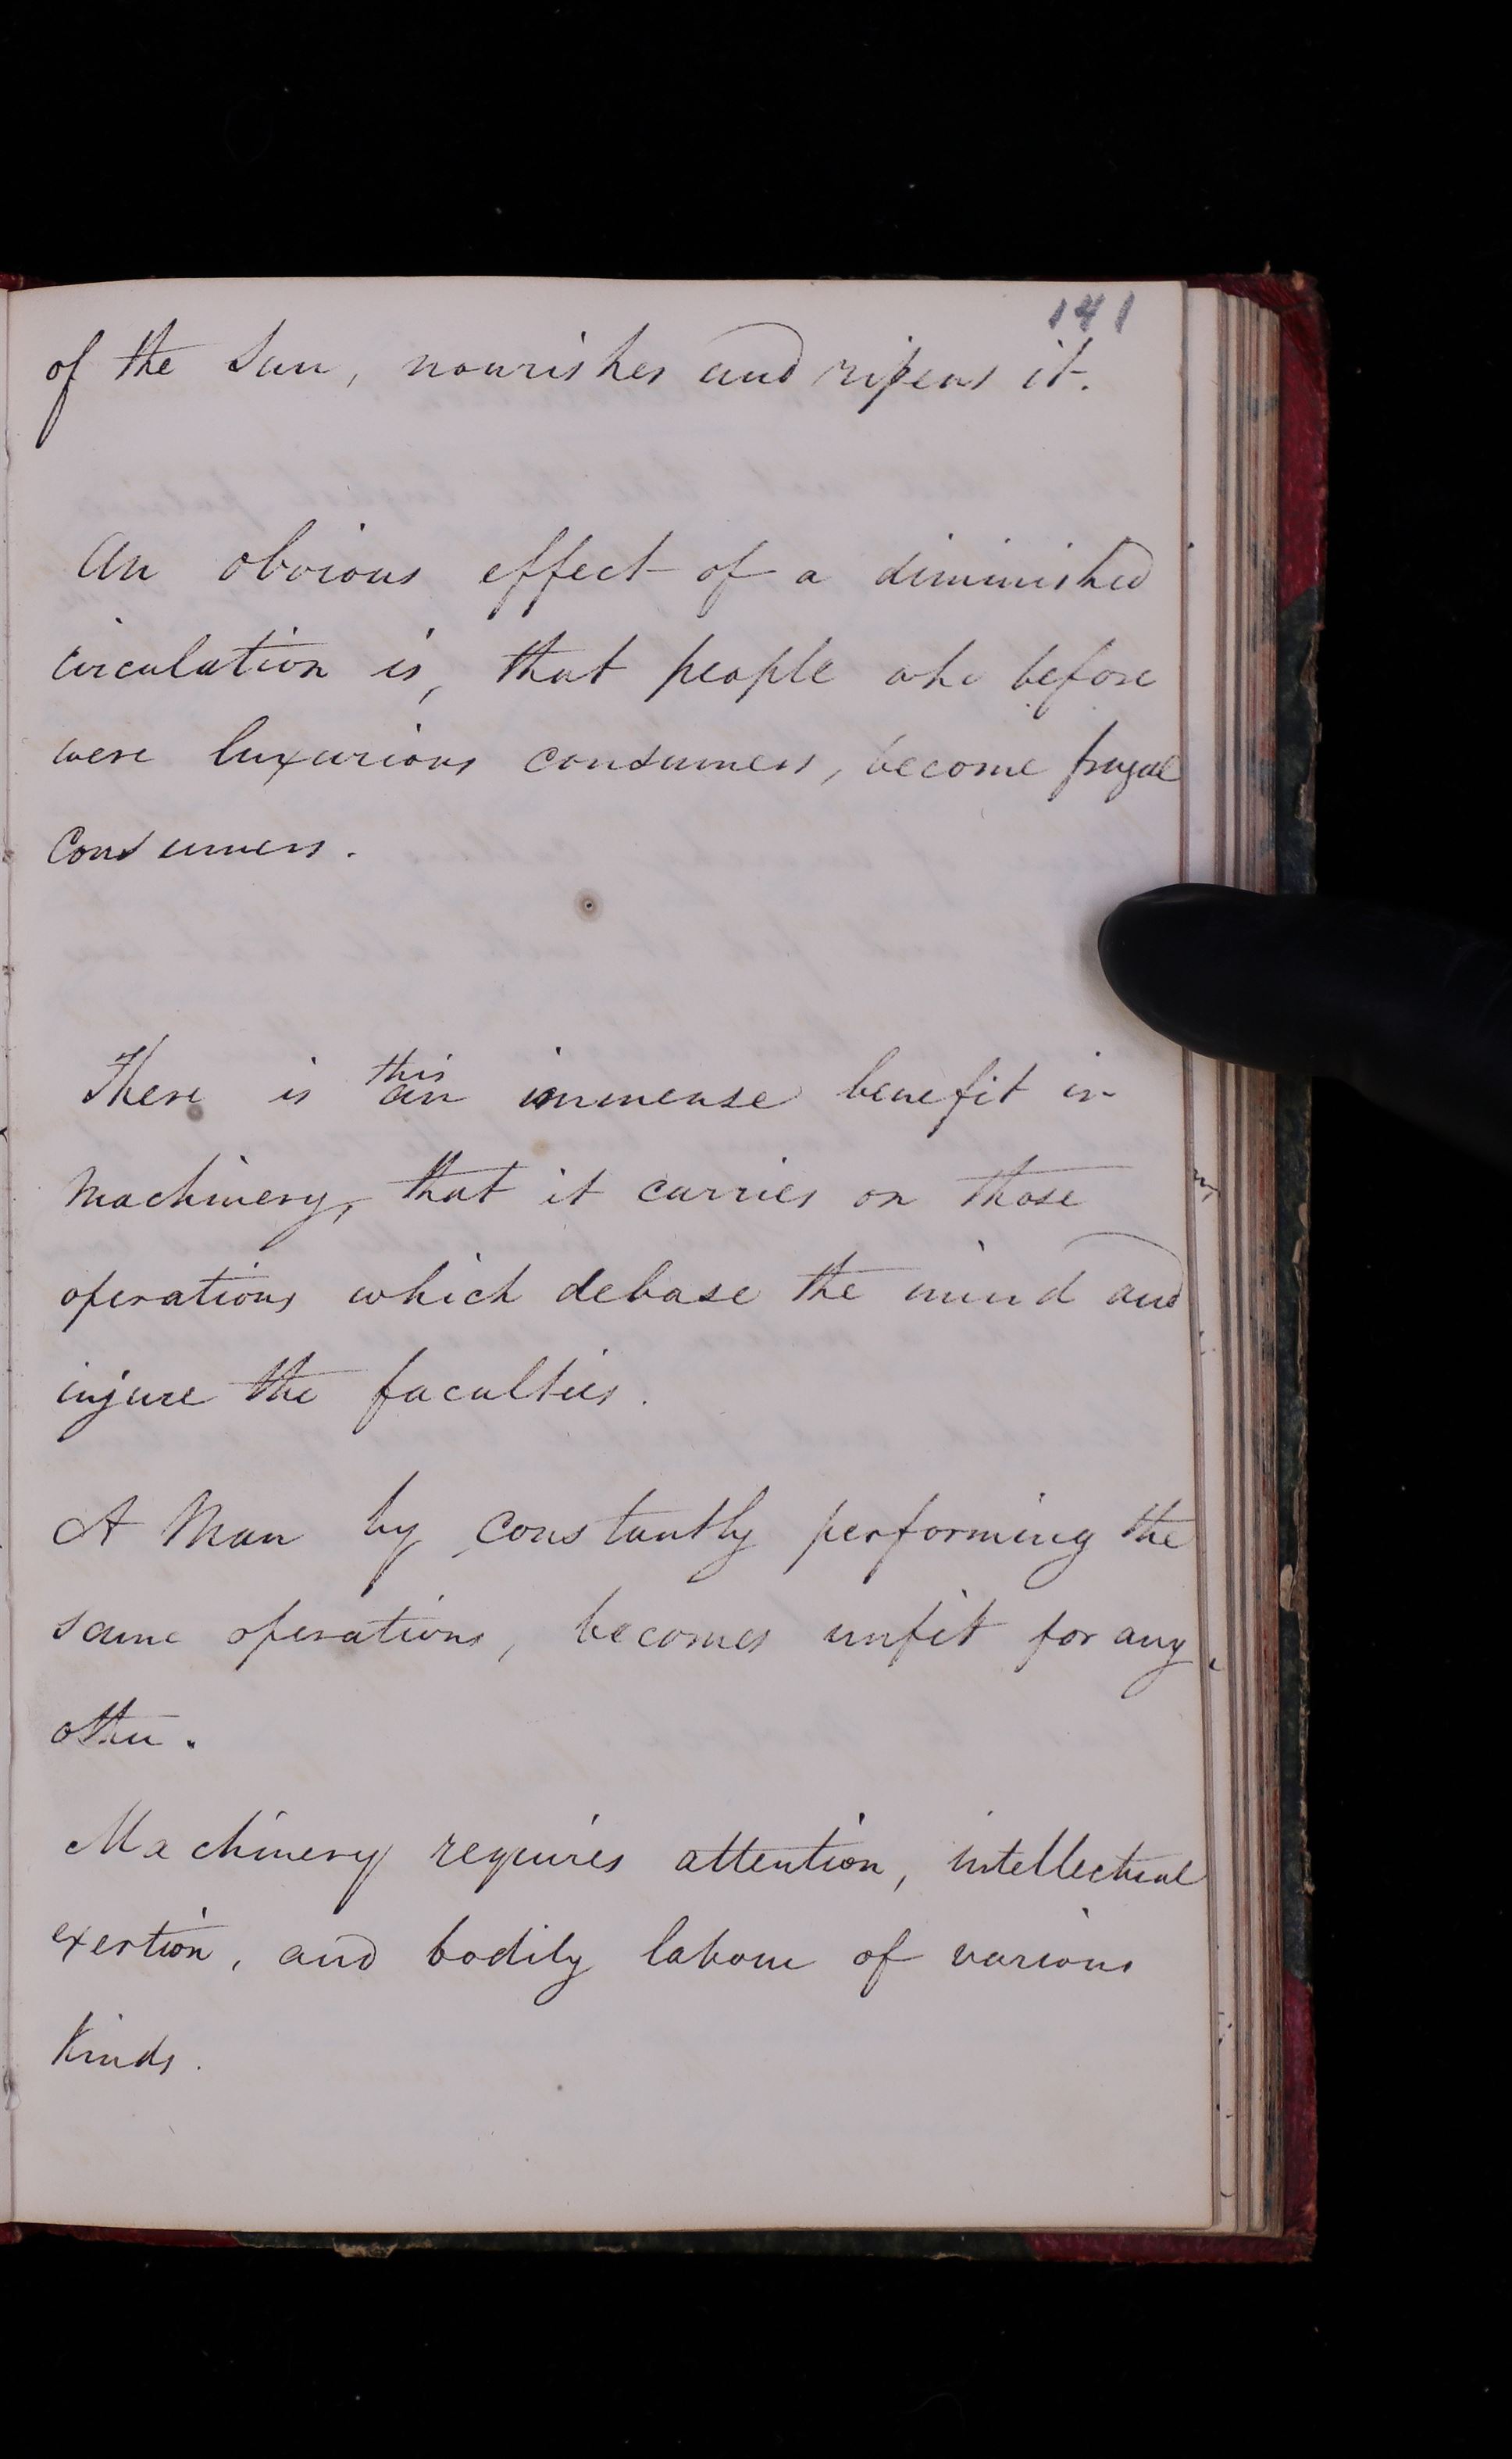 141
of the Sun, nourishes and ripens it.
An obvious effect of a diminished
circulation is, that people who before
were luxurious consumers, become frugal
Consumers.
this
There is an immense benefit in
Machinery, that it carries on those
operations which debase the mind and
injure the faculties.
A Man by constantly performing the
same operations, becomes unfit for any
other.
Machinery requires attention, intellectual
exertion, and bodily labour of various
Kinds.